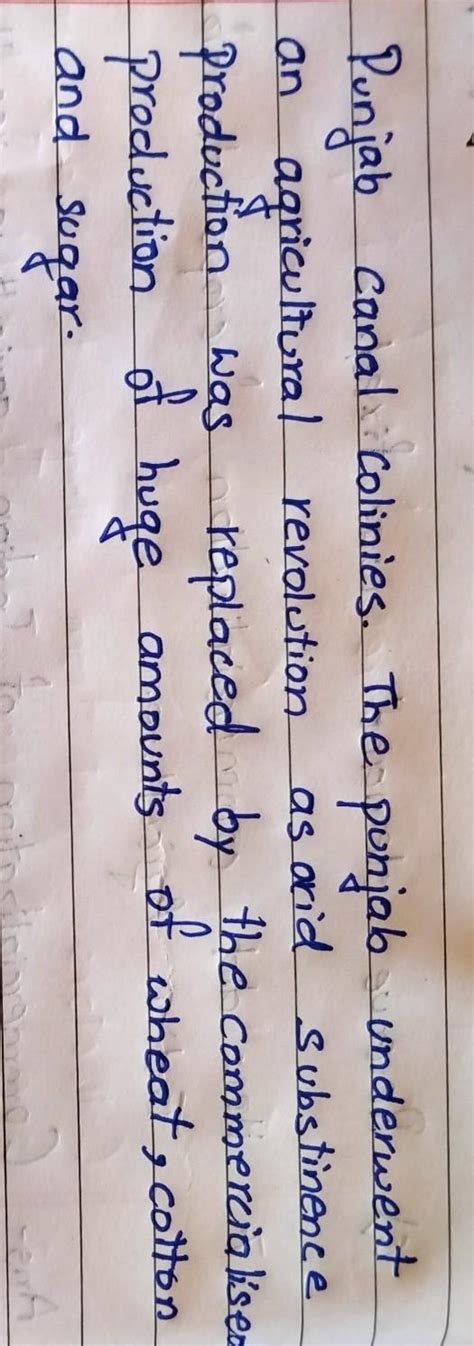 Punjab canal colinies. The punjab underwent
an agricultural revolution as arid substinence
production was replaced by the commercialised
production of huge amounts of wheat, cotton
and sugar.